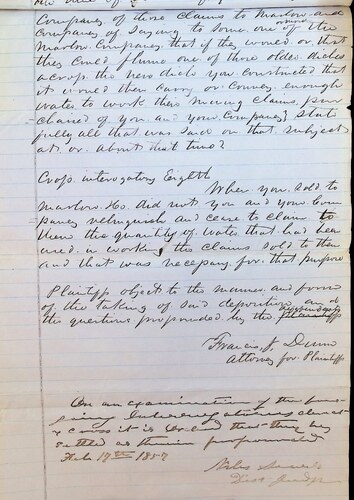 Company of those claims to Marlow and
Company of saying to some one of the
Marlow Company that if they would or that
they could flume one of those older ditches
across the new ditch you constructed that
it would then carry or convey enough
water to work their mining claims pur
chased of you and your Company? State
fully all that was said on that subject
at or about that time?
Cross interogatory Eighth
When you sold to
Marlow & Co. did not you and your Com
pany relinquish and cease to claim to
them the quantity of water that had been
used in working the claims sold to them
and that was necessary for that purpose
Plaintiffs object to the manner and form
of the taking of said deposition and
the questions propounded by the defendants
Francis J. Dunn
Attorney for Plaintiffs
On an examination of the fore
going Interrogatories direct
& cross it is ordered that they be
settled as therein propounded
Feb 17th 1857
Niles Searls
Dist Judge